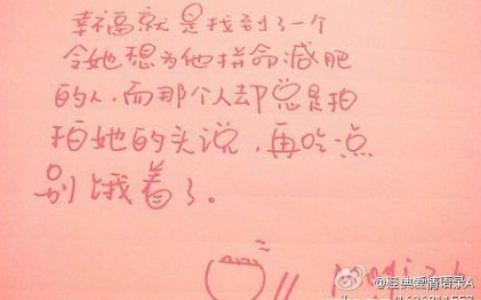 幸福就是找到了一个
令她想为他拼命减肥
的人,而那个人却总是拍
拍她的头说,再吃点
别饿着了。
@经典爱情语录A